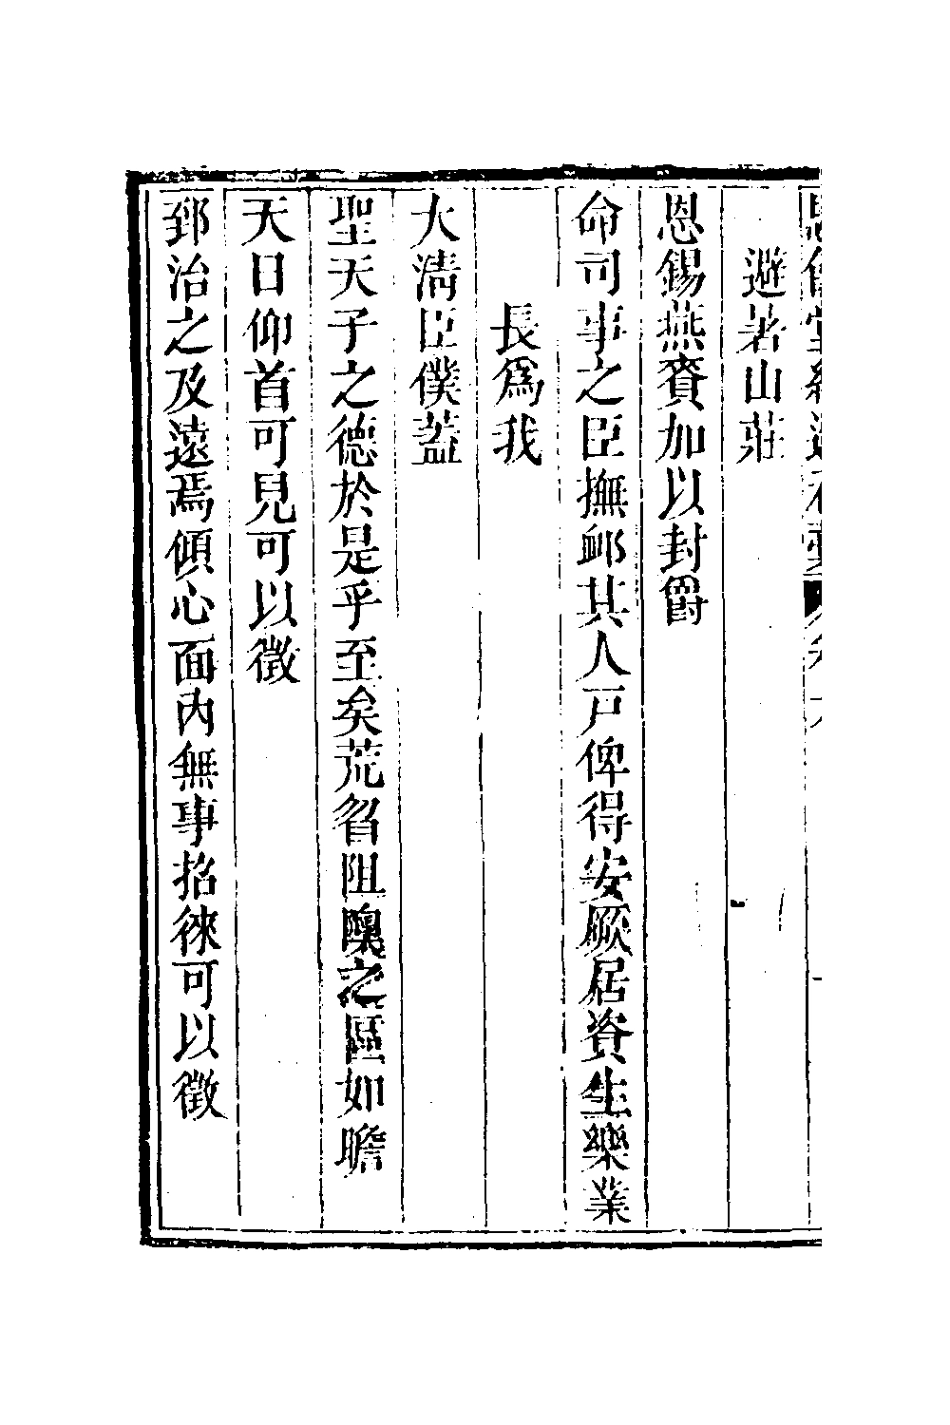 避暑山莊
恩錫燕賚加以封爵
命司事之臣撫䘏其人戸俾得安厥居資生樂業
長爲我
大淸臣僕蓋
聖天子之德於是乎至矣荒㫚阻隩之區如瞻
天日仰首可見可以徵
郅治之及遠焉傾心面內無事招徠可以徵